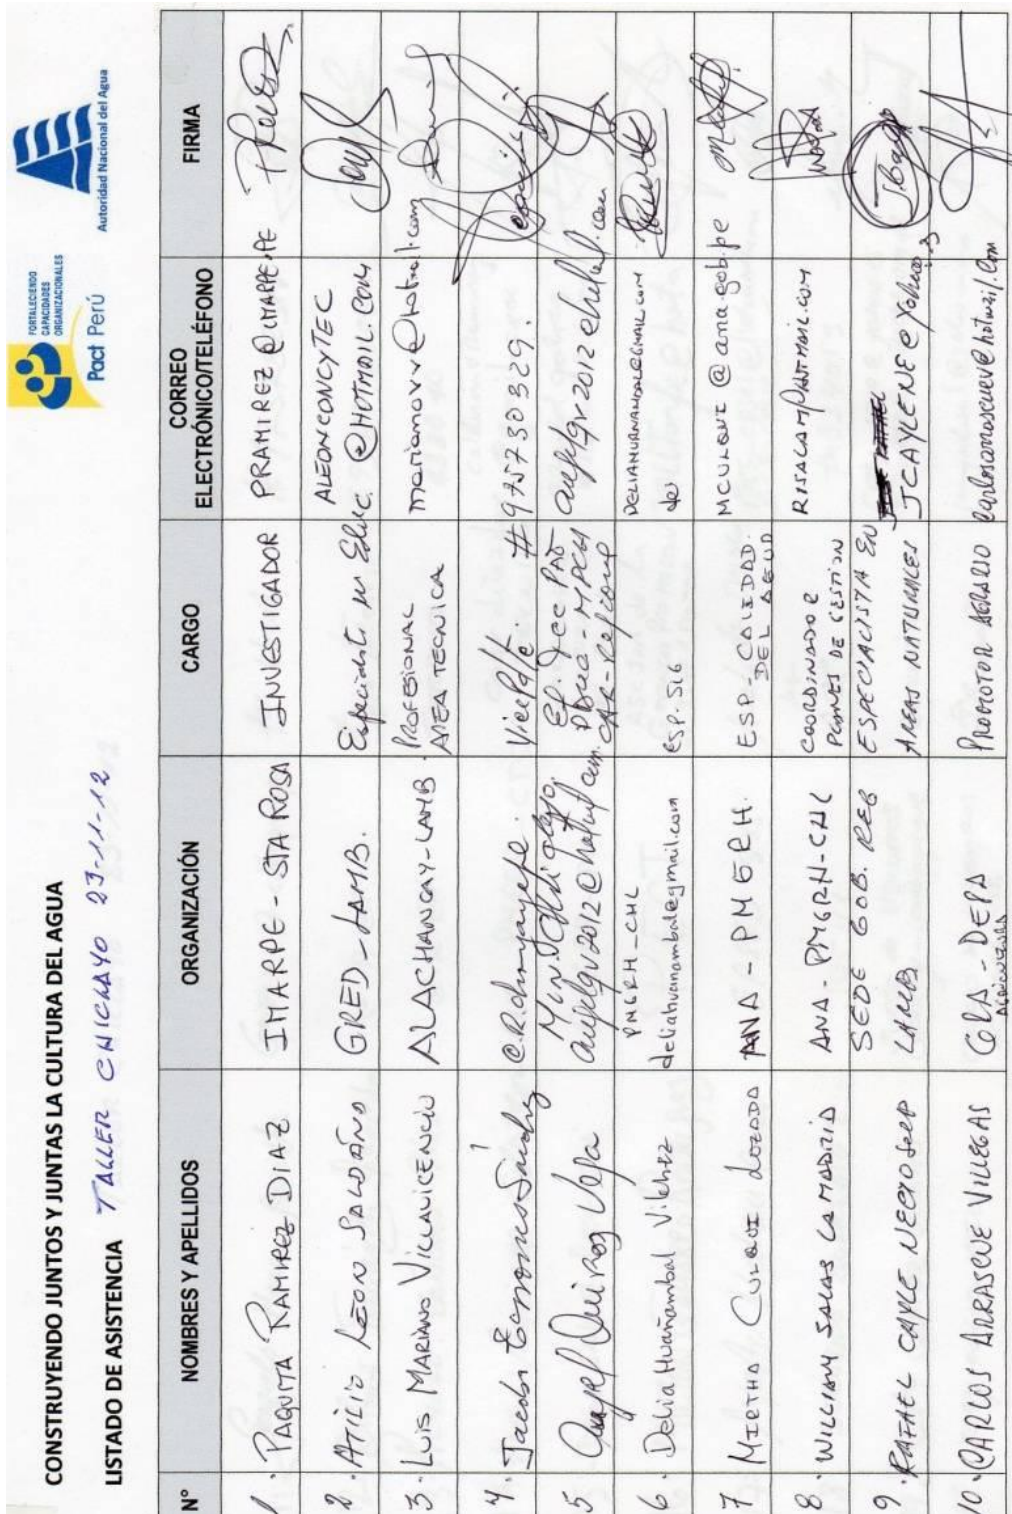 CONSTRUYENDO JUNTOS Y JUNTAS LA CULTURA DEL AGUA
LISTADO DE ASISTENCIA TALLER CHICLAYO 23-11-12
FORTALECIENDO
CAPACIDADES
ORGANIZACIONALES
Pact Perú
Autoridad Nacional del Agua
N° NOMBRES Y APELLIDOS ORGANIZACIÓN CARGO CORREO ELECTRÓNICO/TELÉFONO FIRMA
1. PAQUITA RAMIREZ DIAZ IMARPE - STA ROSA INVESTIGADOR PRAMIREZ@IMARPE.PE
2. ATILIO LEON SALDAÑA GRED-LAMB. Especialista en Educ. ALEONCONCYTEC
@HOTMAIL.COM
3. LUIS MARIANO VILLAVICENCIO ALACHANCAY-LAMB. PROFESIONAL
AREA TECNICA marianovv@hotmail.com
4. Jacobo Sánchez C.R. Vice Pdte. #975730329.
5 Angel Quiroz Vega
6. Delia Huañambal Vilchez PMGRH-CHL
deliahuanambal@gmail.com ESP. SIG DELIAHUANAMBAL@GMAIL.COM
7 MIRTHA CULQUI LOZADA ANA-PMGRH. ESP-CALIDAD
DEL AGUA MCULQUI@ana.gob.pe
8. WILLIAM SALAS LA MADRID ANA-PMGRH-CHL COORDINADOR
PLANES DE GESTION
9. RAFAEL CAYLE SEDE GOB. REG
LAMB ESPECIALISTA EN
AREAS NATURALES JCAYLENE@Yahoo.es
10. CARLOS ARRASCUE VILLEGAS GRA-DEPA
AGRICULTURA PROMOTOR AGRARIO carlosarrascuev@hotmail.com